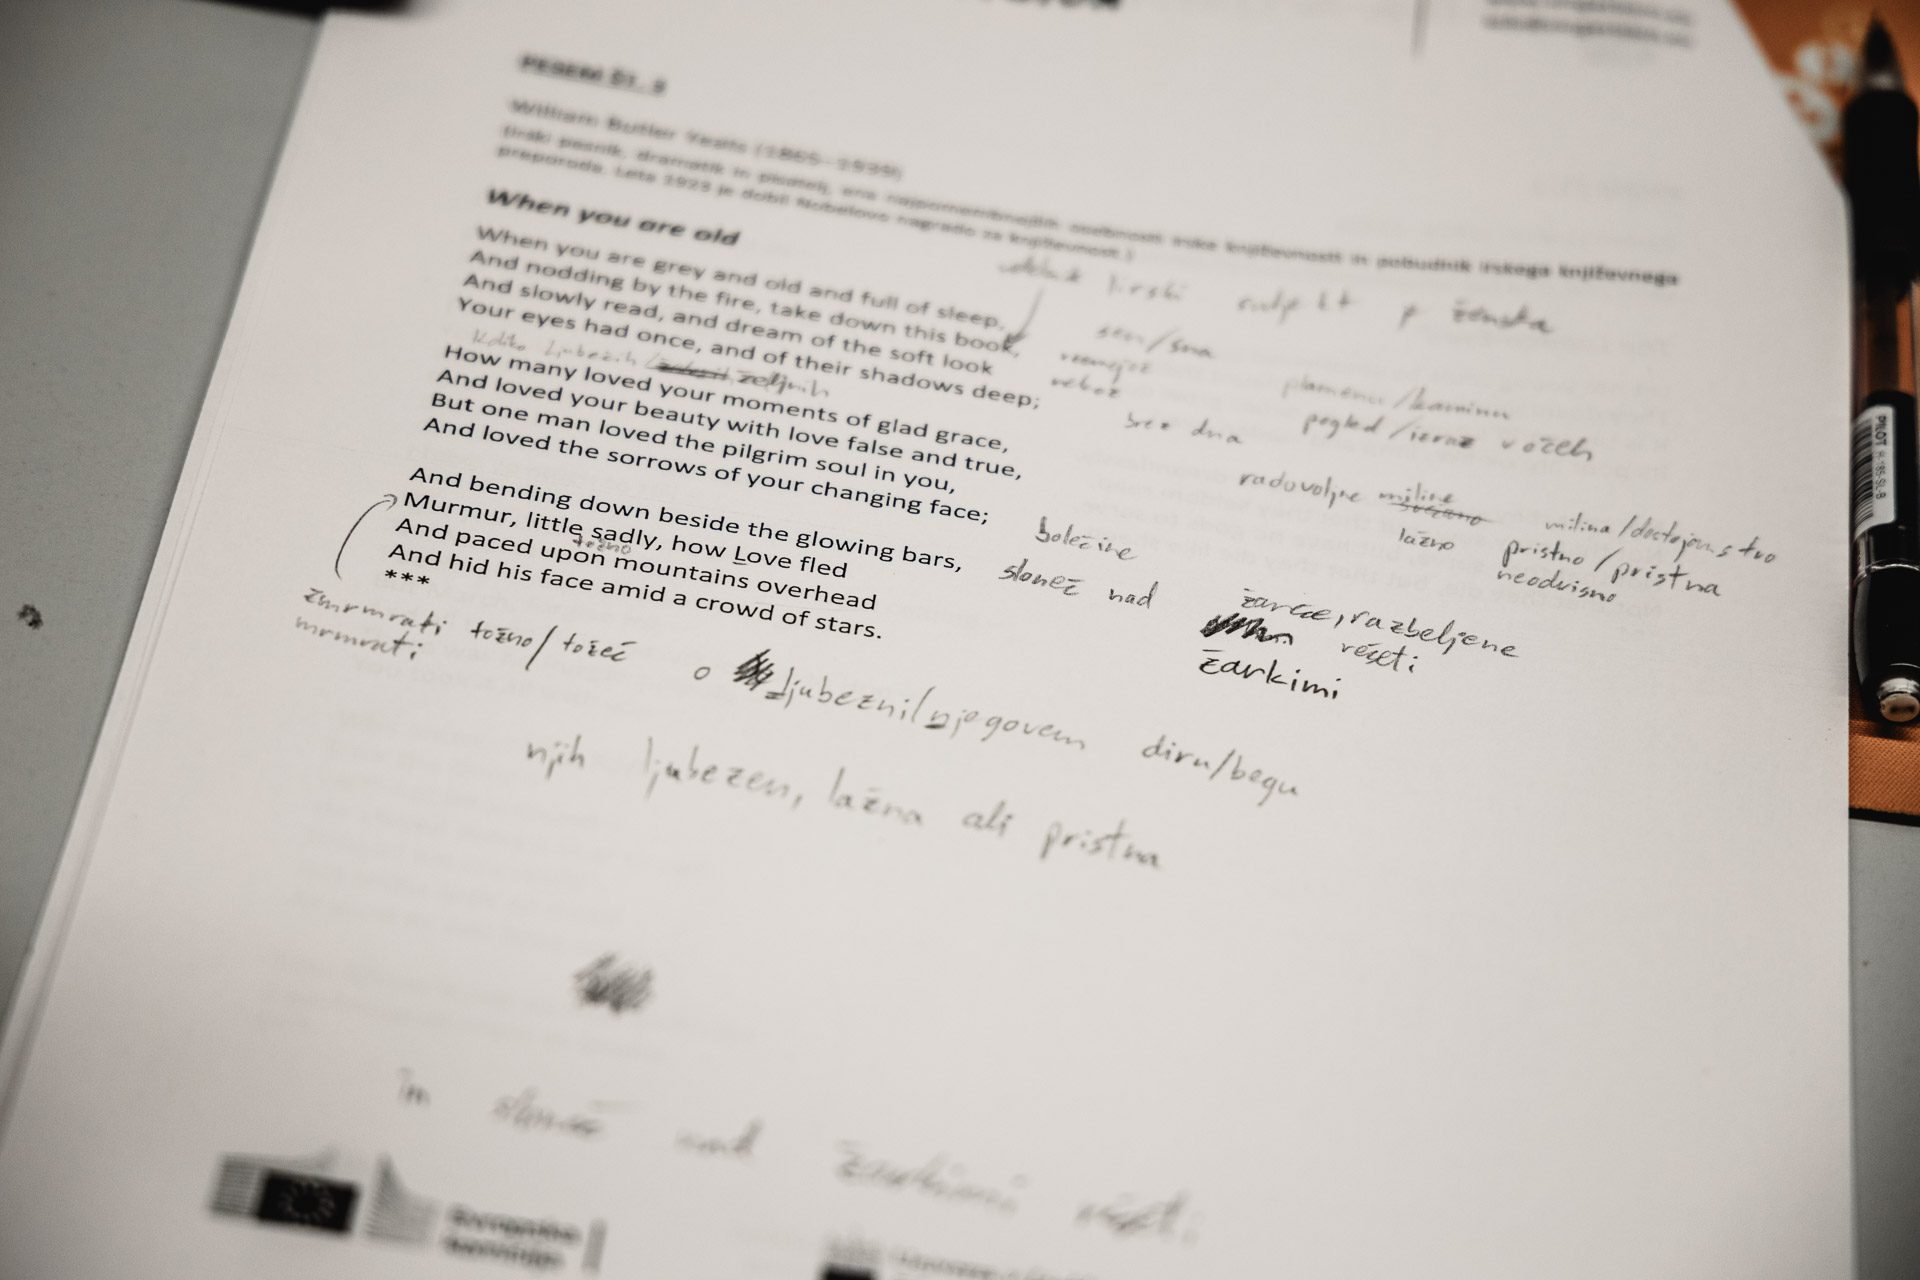 PESEM ŠT. 3
William Butler Yeats (1865–1939)
(Irski pesnik, dramatik in pisatelj, ena najpomembnejših osebnosti irske književnosti in pobudnik irskega književnega
preporoda. Leta 1923 je dobil Nobelovo nagrado za književnost.)
When you are old
When you are grey and old and full of sleep,
And nodding by the fire, take down this book,
And slowly read, and dream of the soft look
Your eyes had once, and of their shadows deep;
How many loved your moments of glad grace,
And loved your beauty with love false and true,
But one man loved the pilgrim soul in you,
And loved the sorrows of your changing face;
And bending down beside the glowing bars,
Murmur, little sadly, how Love fled
And paced upon mountains overhead
And hid his face amid a crowd of stars.
***
lirski ženska
sen/sna
plamenu/kaminu
brez dna pogled/izraz v očeh
radovoljne miline
milina/dostojanstvo
lažno pristno/pristna
neodvisno
bolečine
sloneč nad žareče, razbeljene
rešeti
žarkimi
tožno
zmrmrati tožno/tožeč
mrmrati
o ljubezni/njegovem diru/begu
njih ljubezen, lažna ali pristna
in sloneč nad žarkimi rešeti
Evropska
komisija
PILOT